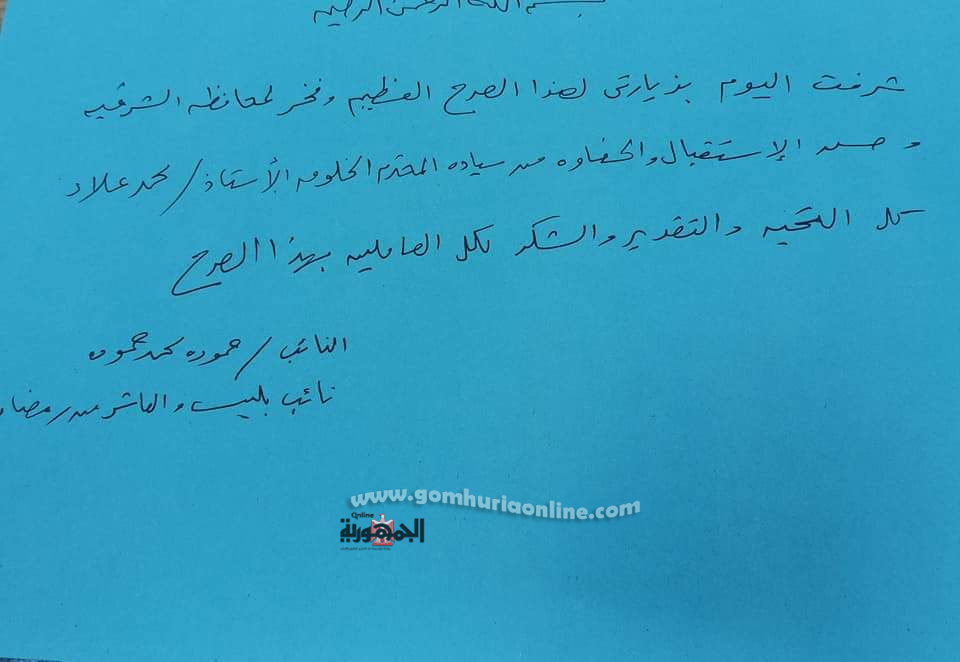 بسم الله الرحمن الرحيم
شرفت اليوم بزيارتى لهذا الصرح العظيم وفخر لمحافظه الشرقيه
و حسن الإستقبال والحفاوه من سياده المحترم الخلوق الأستاذ / محمد علاء
كل التحيه والتقدير والشكر لكل العاملين بهذا الصرح
النائب / حموده محمد حموده
نائب بلبيس والعاشر من رمضان
www.gomhuriaonline.com
Online
الجمهورية